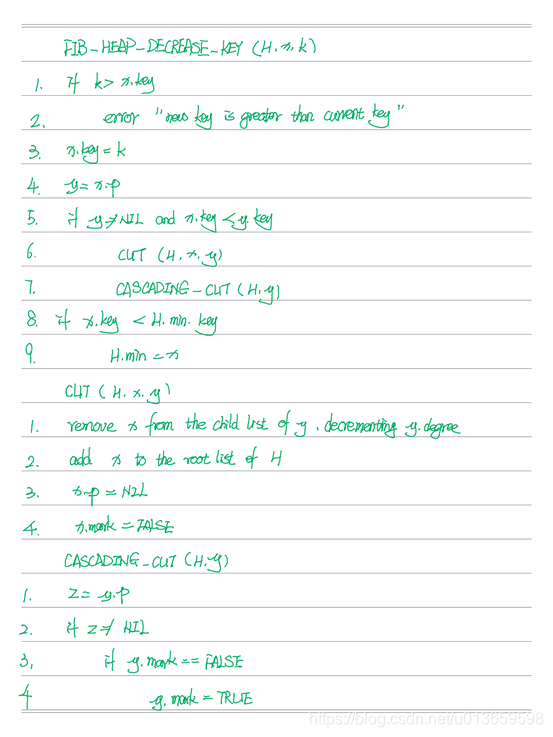 FIB-HEAP-DECREASE-KEY (H,x,k)
1. if k > x.key
2. error "new key is greater than current key"
3. x.key = k
4. y = x.p
5. if y ≠ NIL and x.key < y.key
6. CUT (H,x,y)
7. CASCADING-CUT (H,y)
8. if x.key < H.min.key
9. H.min = x
CUT (H,x,y)
1. remove x from the child list of y, decrementing y.degree
2. add x to the root list of H
3. x.p = NIL
4. x.mark = FALSE
CASCADING-CUT (H,y)
1. z = y.p
2. if z ≠ NIL
3, if y.mark == FALSE
4 y.mark = TRUE
https://blog.csdn.net/u013659598